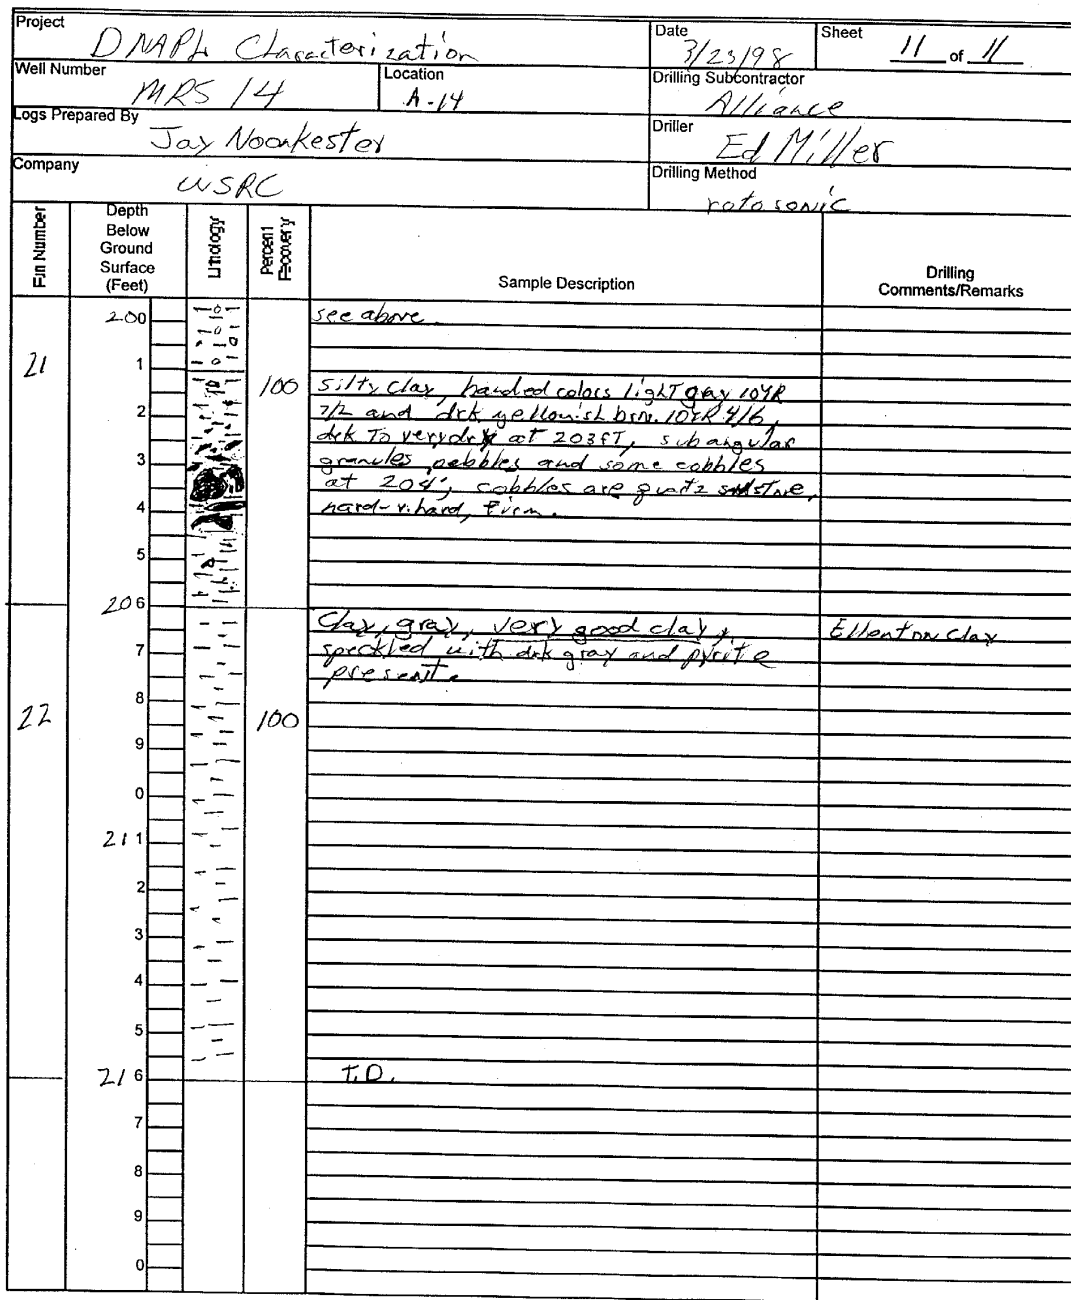 Project
DNAPL Characterization
Date
3/23/98
Sheet 11 of 11
Well Number
MRS 14
Location
A-14
Drilling Subcontractor
Alliance
Logs Prepared By
Jay Noonkester
Driller
Ed Miller
Company
WSRC
Drilling Method
rotosonic
Run Number
Depth Below Ground Surface (Feet)
Lithology
Percent Recovery
Sample Description
Drilling Comments/Remarks
200 see above
1
21 100 silty clay, banded colors light gray 10YR
2 7/2 and drk yellowish brn. 10YR 4/6,
drk to very at 203FT, subangular
3 granules pebbles and some cobbles
at 204', cobbles are quartz
4 hard-v.hard, firm.
5
206
Clay, gray, very good clay, Ellenton Clay
7 speckled with drk gray and pyrite
present.
8
22 100
9
0
211
2
3
4
5
216 T.D.
7
8
9
0